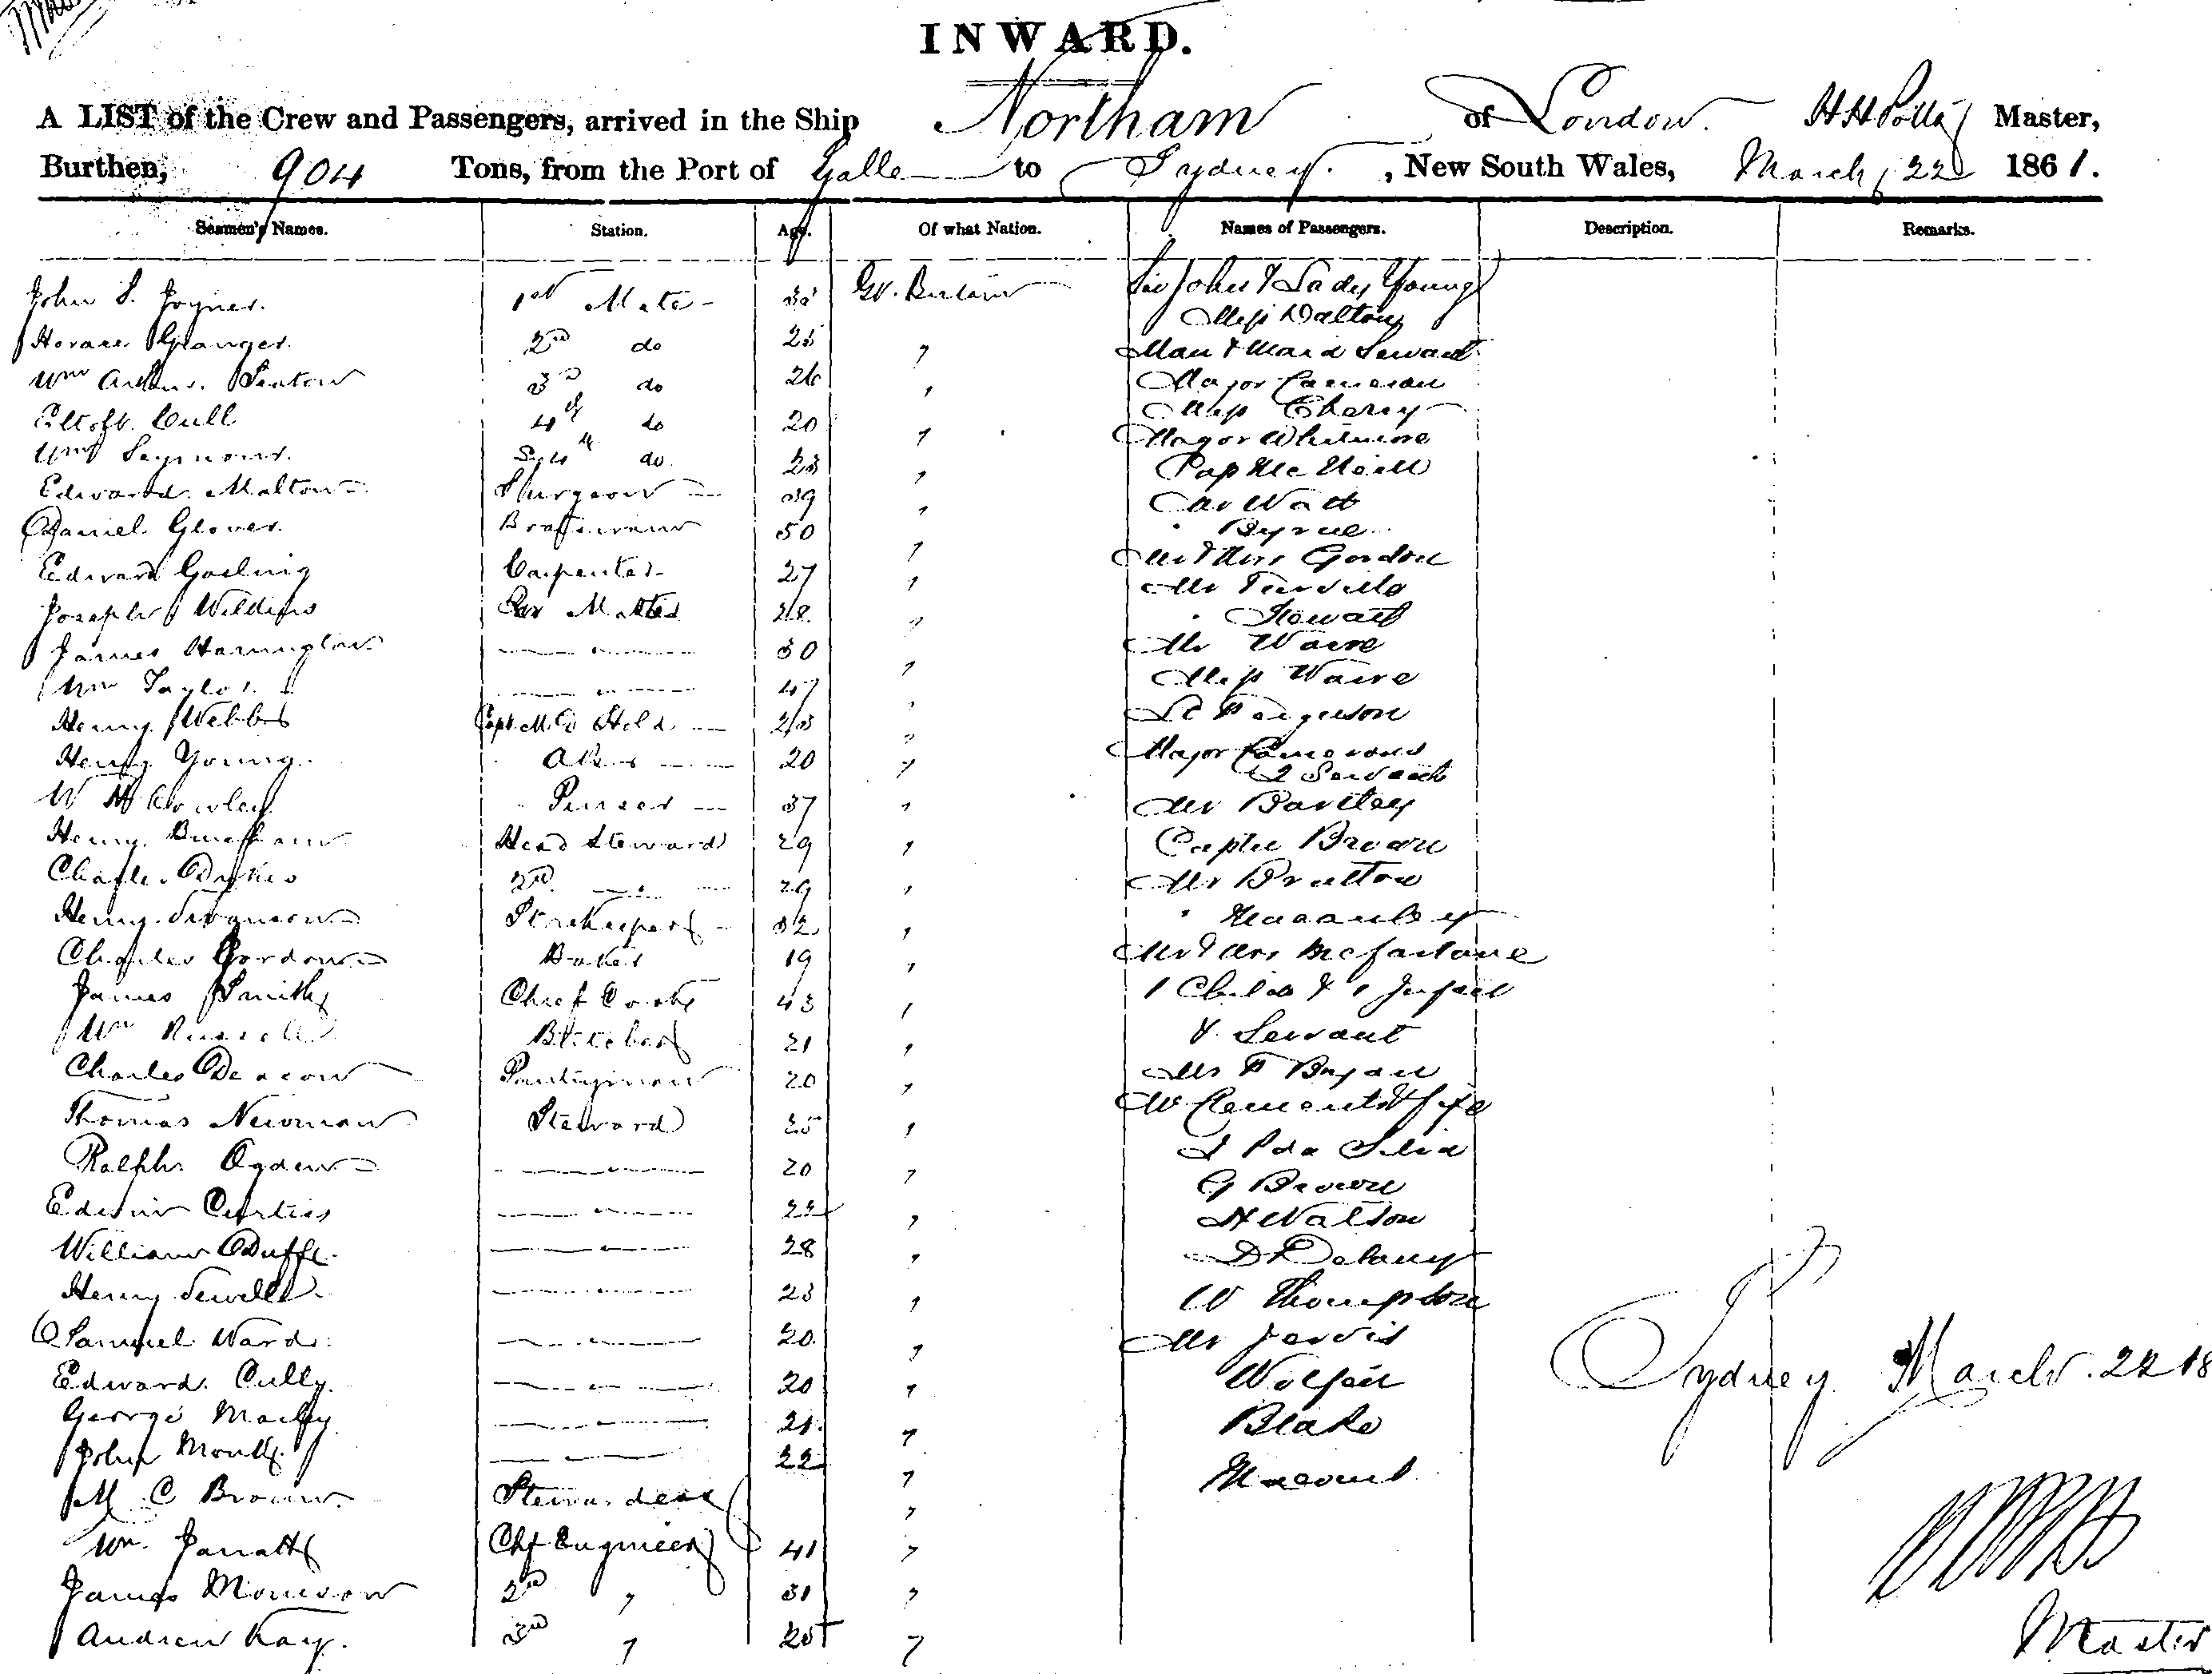 INWARD.
A LIST of the Crew and Passengers, arrived in the Ship Northam of London. Master,
Burthen, 904 Tons, from the Port of Galle to Sydney. , New South Wales, March 22 1861.
Seamen's Names. Station. Age. Of what Nation. Names of Passengers. Description. Remarks.
John S. Joyner. 1st Mate Gt. Britain Sir John & Lady Young
Miss Dalton
Horace Granger. 2nd do 25 Man & Maid Servant
Wm 3d do 26 Major Cameron
Cull 4th do 20 Miss Cherry
Wm Seymour. do. 23 Major Whitmore
Edward Malton Surgeon 39 Cap McNeill
Mr Watt
Daniel Glover. 50 Byrne
Edward Gosling Carpenter 27 Mr & Mrs Gordon
Mr
Joseph Wilkins Qur Mates 28 Stewart
James Harrington 30 Mr
Wm Taylor 47 Miss
Henry Webb 23 Ferguson
Henry Young. AB 20 Major Camerons
2 Servants
W H Purser 37 Mr Bartley
Henry Head Steward 29 Captn Brown
Charles Dykes 2nd 29 Mr Bratton
Henry Storekeeper 32 Macauley
Charles Gordon Baker 19 Mr & Mrs McFarlane
James Smith Chief Cook 43 1 Child & 1 Infant
Wm Russell Butcher 21 & Servant
Charles Deacon Pantryman 20 Mr
Thomas Newman Steward 25 W Clements & Wife
Ralph Ogden 20
Edwin Curtis 22 G Brown
William Duff. 28 H Watson
Henry Sewell 23 Delany
Samuel Ward. 20 W Thompson
Mr Jervis
Edward Cully. 20
George 21. Blake
John Monk 22
M C Brown. Stewardess
Wm. Jarratt Chf Engineer 41
James Morrison 2nd 31
Andrew Kay. 3rd 25
Sydney March. 22 18
Master